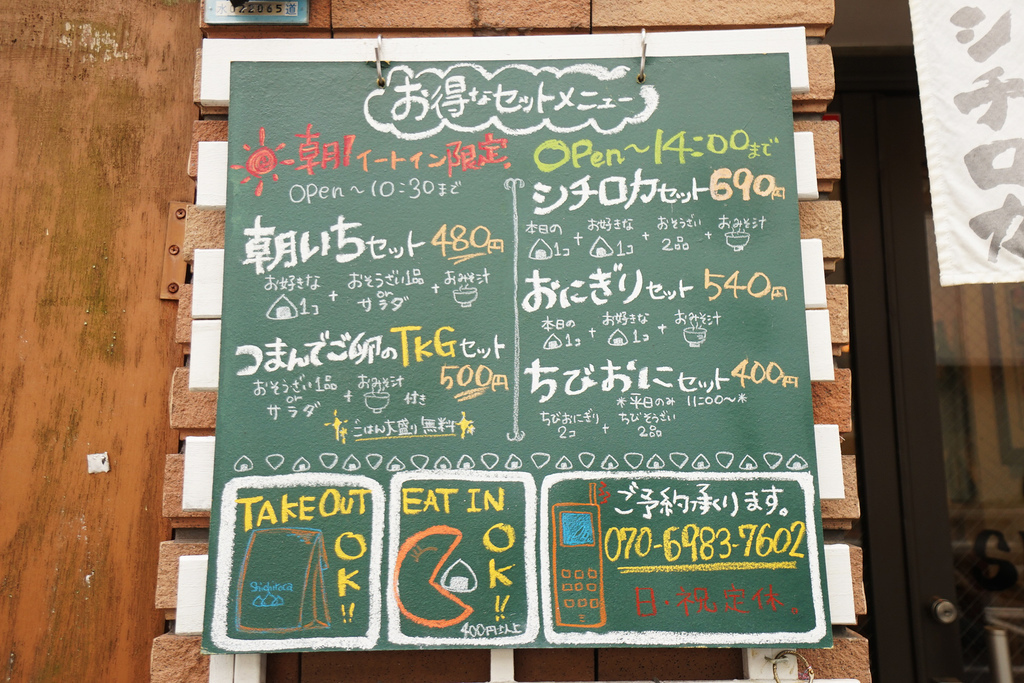 水022065道
お得なセットメニュー
朝!イートイン限定
OPen〜10:30まで
朝いちセット 480円
お好きな + おそうざい1品 or サラダ + おみそ汁
1コ
つまんでご卵のTKGセット
500円
おそうざい1品 or サラダ + おみそ汁 付き
ごはん大盛り無料
OPen〜14:00まで
シチロカセット 690円
本日の + お好きな + おそうざい + おみそ汁
1コ 1コ 2品
おにぎりセット 540円
本日の + お好きな + おみそ汁
1コ 1コ
ちびおにセット 400円
*平日のみ 11:00〜*
ちびおにぎり + ちびそうざい
2コ 2品
TAKE OUT
OK!!
Shichiroca
EAT IN
OK!!
400円以上
ご予約承ります。
070-6983-7602
日・祝定休。
シチロカ